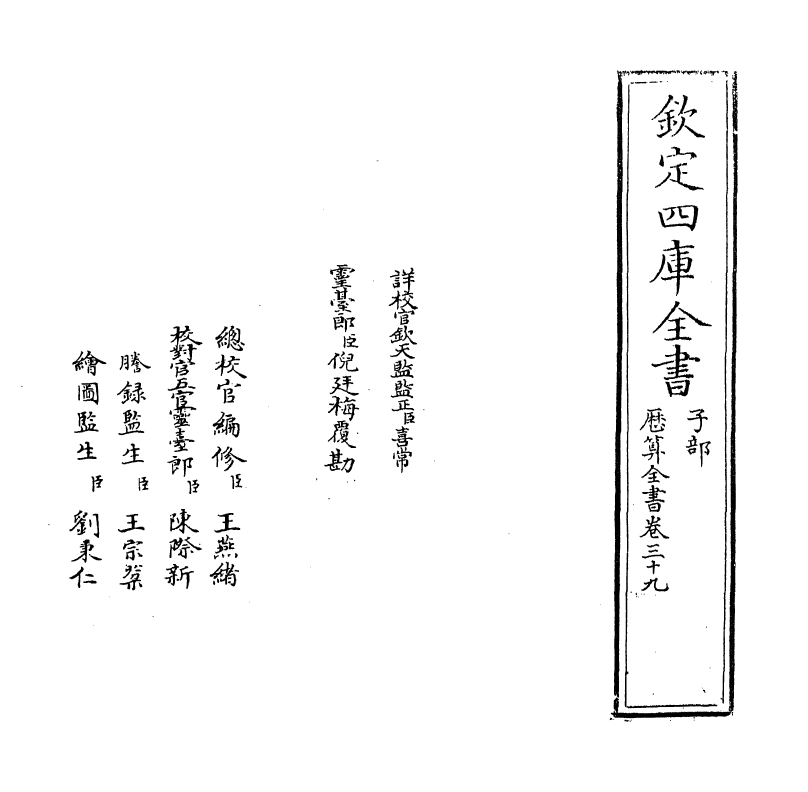 欽定四庫全書
子部
歷算全書卷三十九
詳校官欽天監監正臣喜常
靈臺郎臣倪廷梅覆勘
總校官編修臣王燕緒
校對官五官靈臺郎臣陳際新
謄録監生臣王宗棠
繪圖監生臣劉秉仁